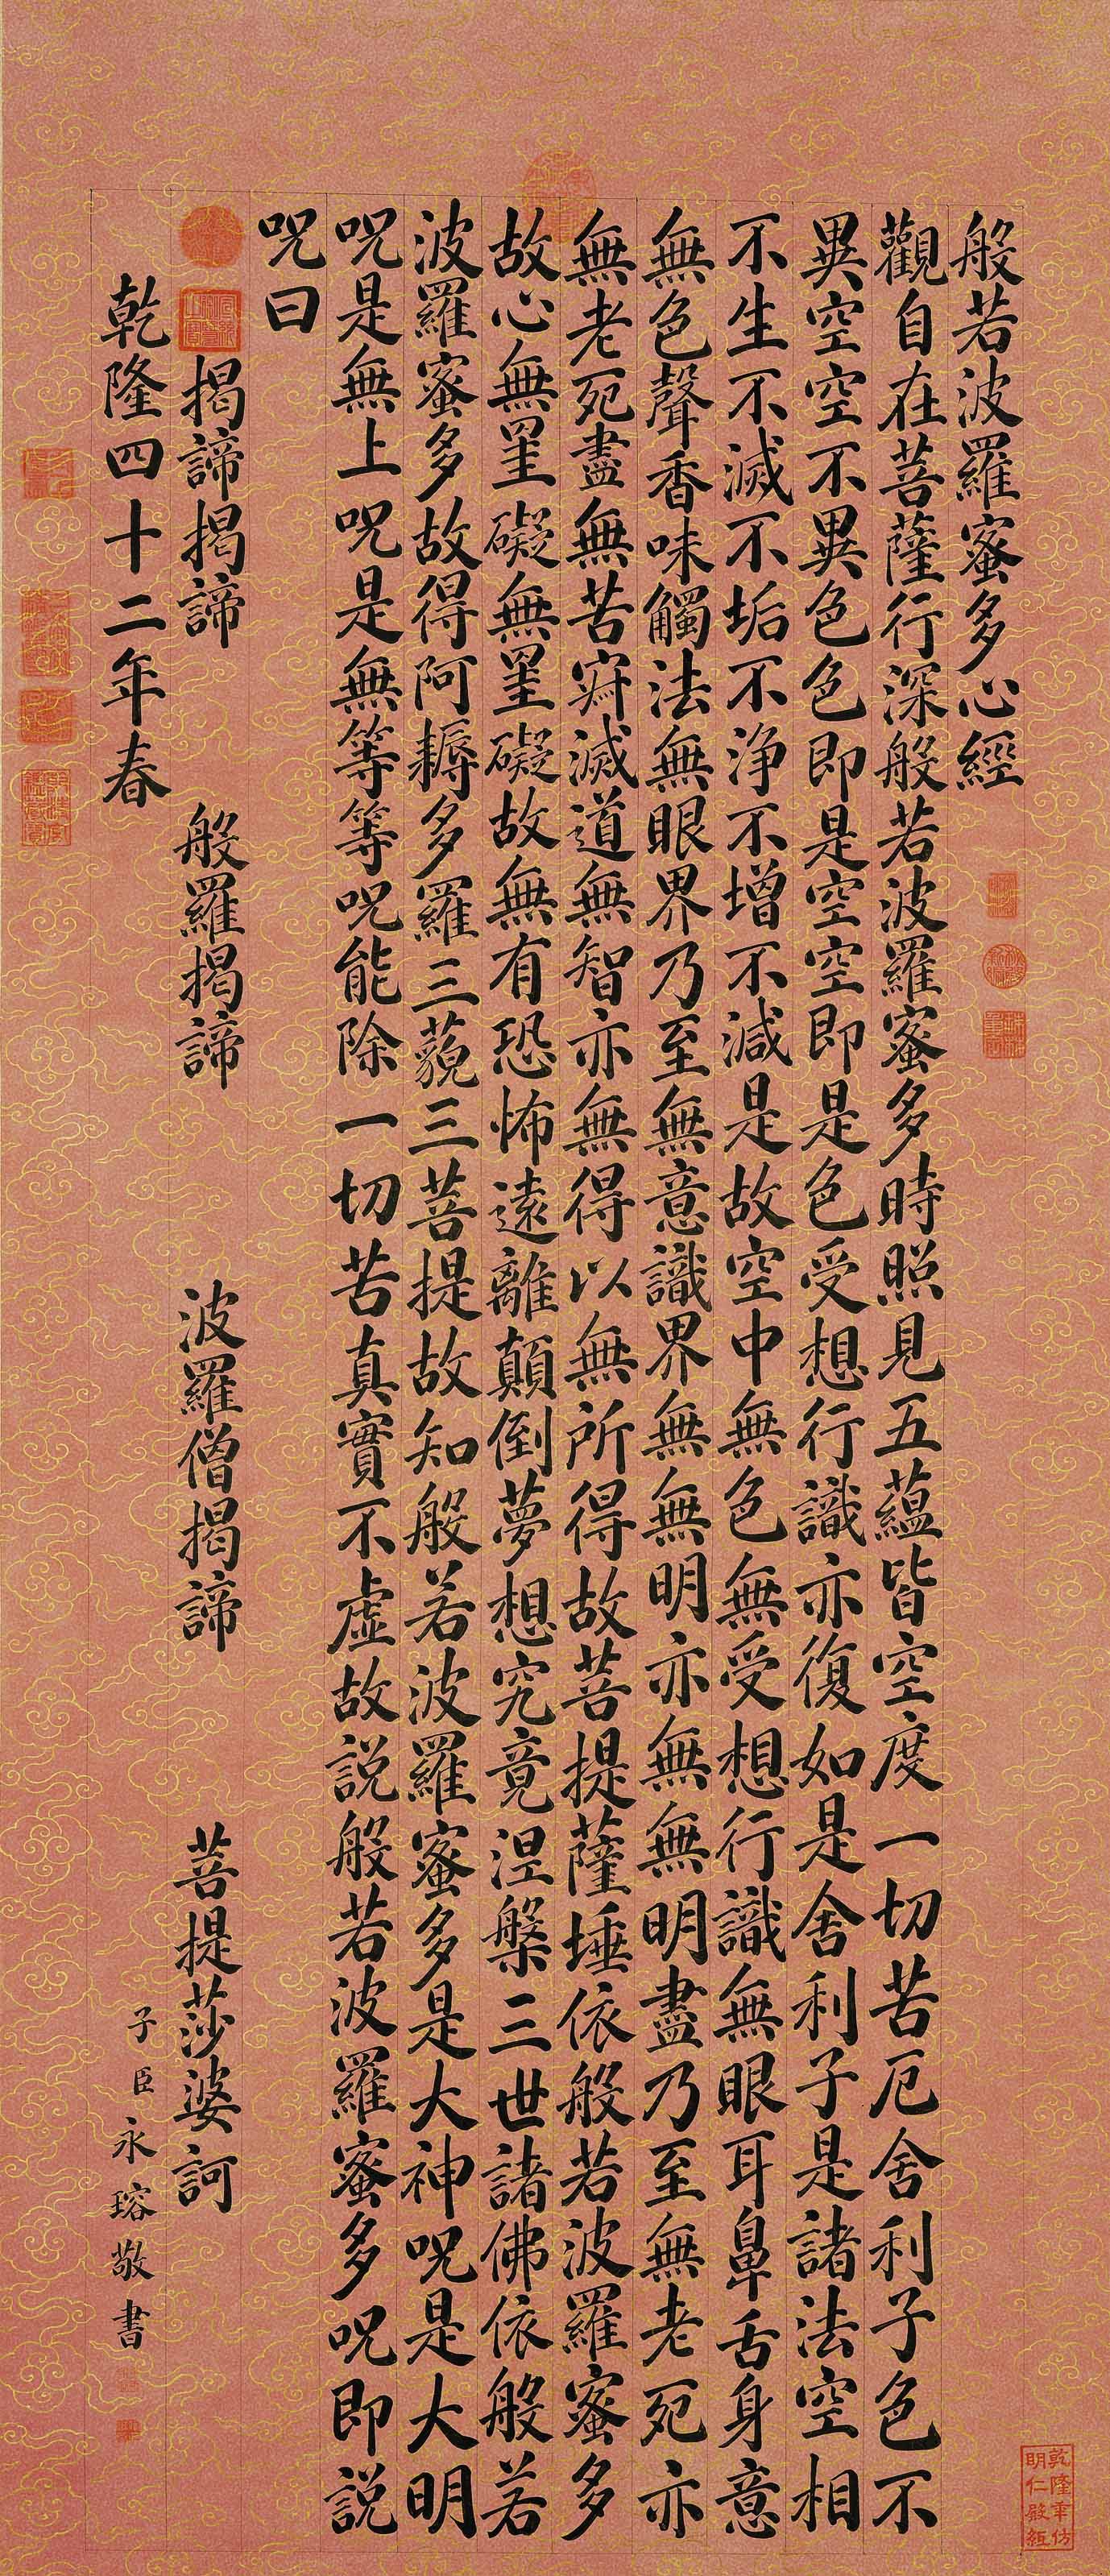 般若波羅蜜多心經
觀自在菩薩行深般若波羅蜜多時照見五蘊皆空度一切苦厄舍利子色不
異空空不異色色即是空空即是色受想行識亦復如是舍利子是諸法空相
不生不滅不垢不淨不增不減是故空中無色無受想行識無眼耳鼻舌身意
無色聲香味觸法無眼界乃至無意識界無無明亦無無明盡乃至無老死亦
無老死盡無苦寂滅道無智亦無得以無所得故菩提薩埵依般若波羅蜜多
故心無罣礙無罣礙故無有恐怖遠離顛倒夢想究竟涅槃三世諸佛依般若
波羅蜜多故得阿耨多羅三藐三菩提故知般若波羅蜜多是大神呪是大明
呪是無上呪是無等等呪能除一切苦真實不虛故說般若波羅蜜多呪即說
呪曰
揭諦揭諦 般羅揭諦 波羅僧揭諦 菩提莎婆訶
乾隆四十二年春
子臣永瑢敬書
乾隆年仿
明仁殿紙